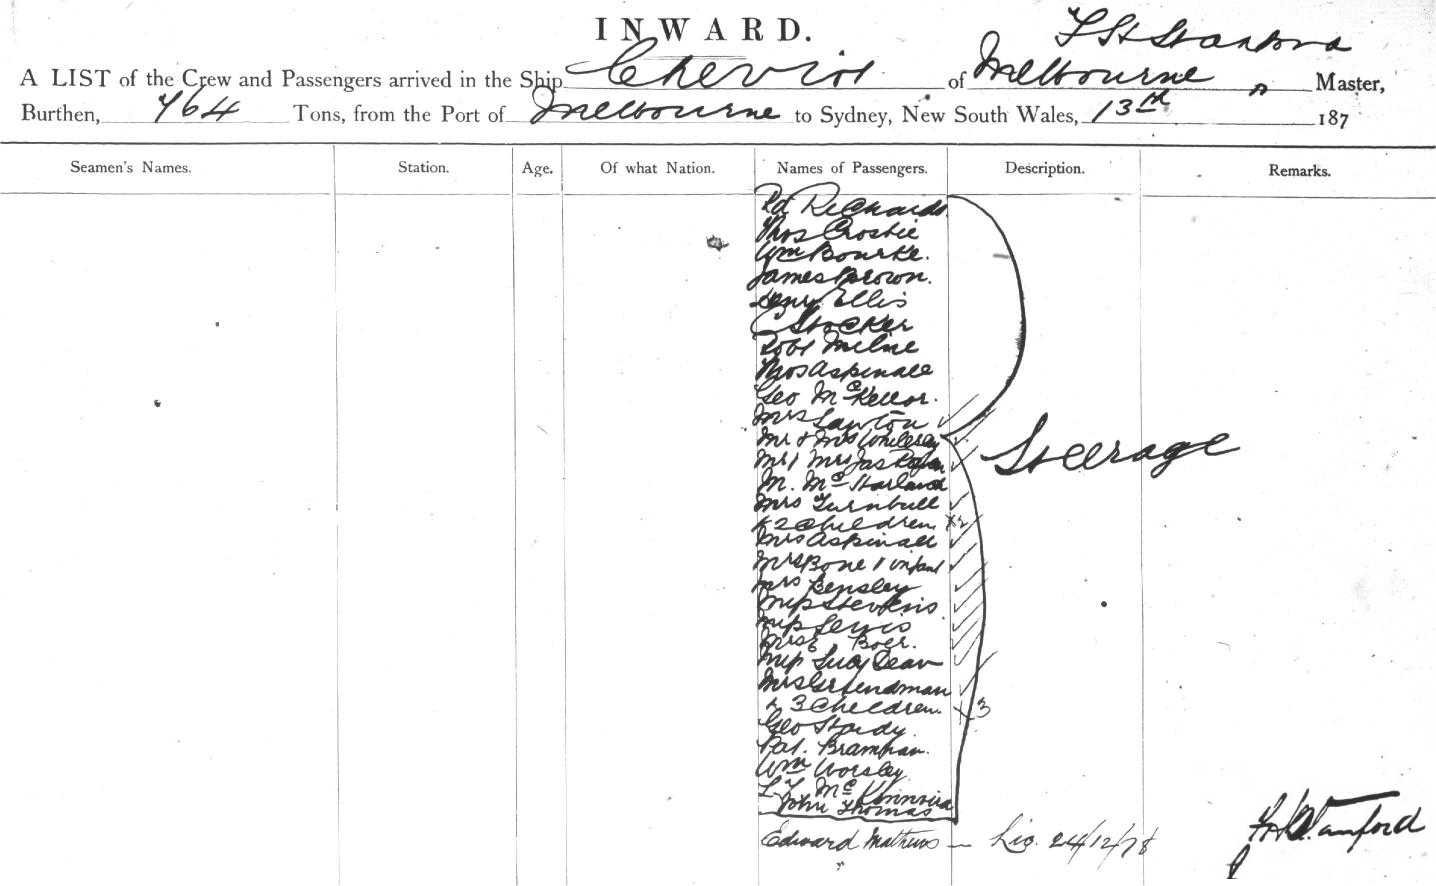 INWARD.
A LIST of the Crew and Passengers arrived in the Ship Cheviot of Melbourne Master,
Burthen, 764 Tons, from the Port of Melbourne to Sydney, New South Wales, 13th 187
Seamen's Names. Station. Age. Of what Nation. Names of Passengers. Description. Remarks.
Rd Richards
Thos Crosbie
Wm Bourke.
James Brown.
Henry Ellis
C Stocker
Robt Milne
Thos Aspinall
Geo McKellor.
Mrs Lawton
Mr & Mrs
Mr & Mrs Jas
M. Mc
Mrs Turnbull
& 2 Children x2
Mrs Aspinall
Mrs Bone & infant
Mrs Bensley
Miss Stevens
Miss Lewis
Boer.
Miss Lucy Dean
Mrs
& 3 Children. x3
Geo Sturdy
Pat.
Wm Worsley
L Mc
John Thomas
Steerage
Edward Mathews — 24/12/78
Stanford